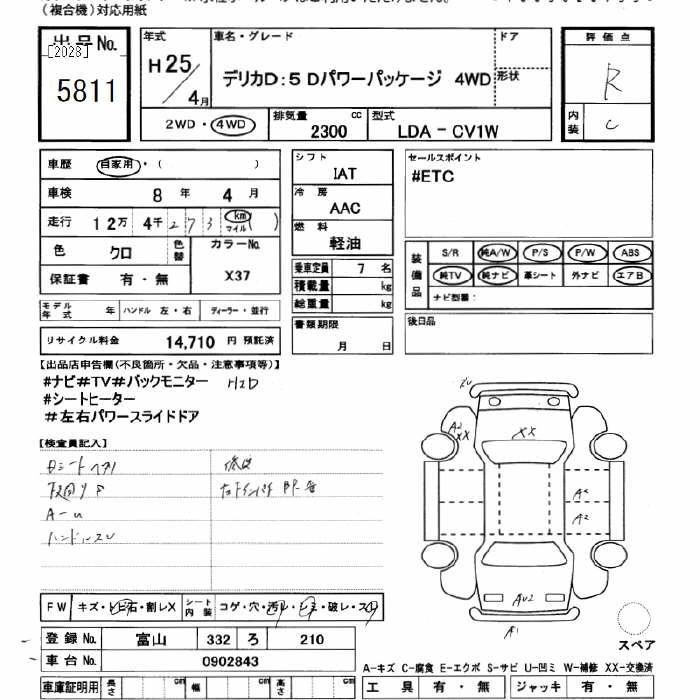 (複合機)対応用紙
出品No.
[2028]
5811
年式
H25/4月
車名・グレード
デリカD:5 Dパワーパッケージ 4WD
ドア
形状
2WD・4WD
排気量 2300 cc
型式 LDA - CV1W
評価点
R
内装
C
車歴 自家用・( )
車検 8年 4月
走行 12万 4千 273 km マイル ( )
色 クロ 色替 カラーNo.
保証書 有・無 X37
モデル年式 年 ハンドル 左・右 ディーラー・並行
リサイクル料金 14,710 円 預託済
シフト
IAT
冷房
AAC
燃料
軽油
乗車定員 7 名
積載量 kg
総重量 kg
書類期限
月 日
セールスポイント
#ETC
装備品
S/R 純A/W P/S P/W ABS
純TV 純ナビ 革シート 外ナビ エアB
ナビ型番:
後日品
【出品店申告欄(不良箇所・欠品・注意事項等)】
#ナビ#TV#バックモニター
#シートヒーター
#左右パワースライドドア
【検査員記入】
ハンドルスレ
XX
A2
XX
A2
AU2
A1
FW キズ・トビ石・割レX シート内装 コゲ・穴・汚レ・シミ・破レ・スレ
登録No. 富山 332 ろ 210
車台No. 0902843
車庫証明用 長さ cm 幅 cm 高さ cm
スペア
A-キズ C-腐食 E-エクボ S-サビ U-凹ミ W-補修 XX-交換済
工具 有・無 ジャッキ 有・無